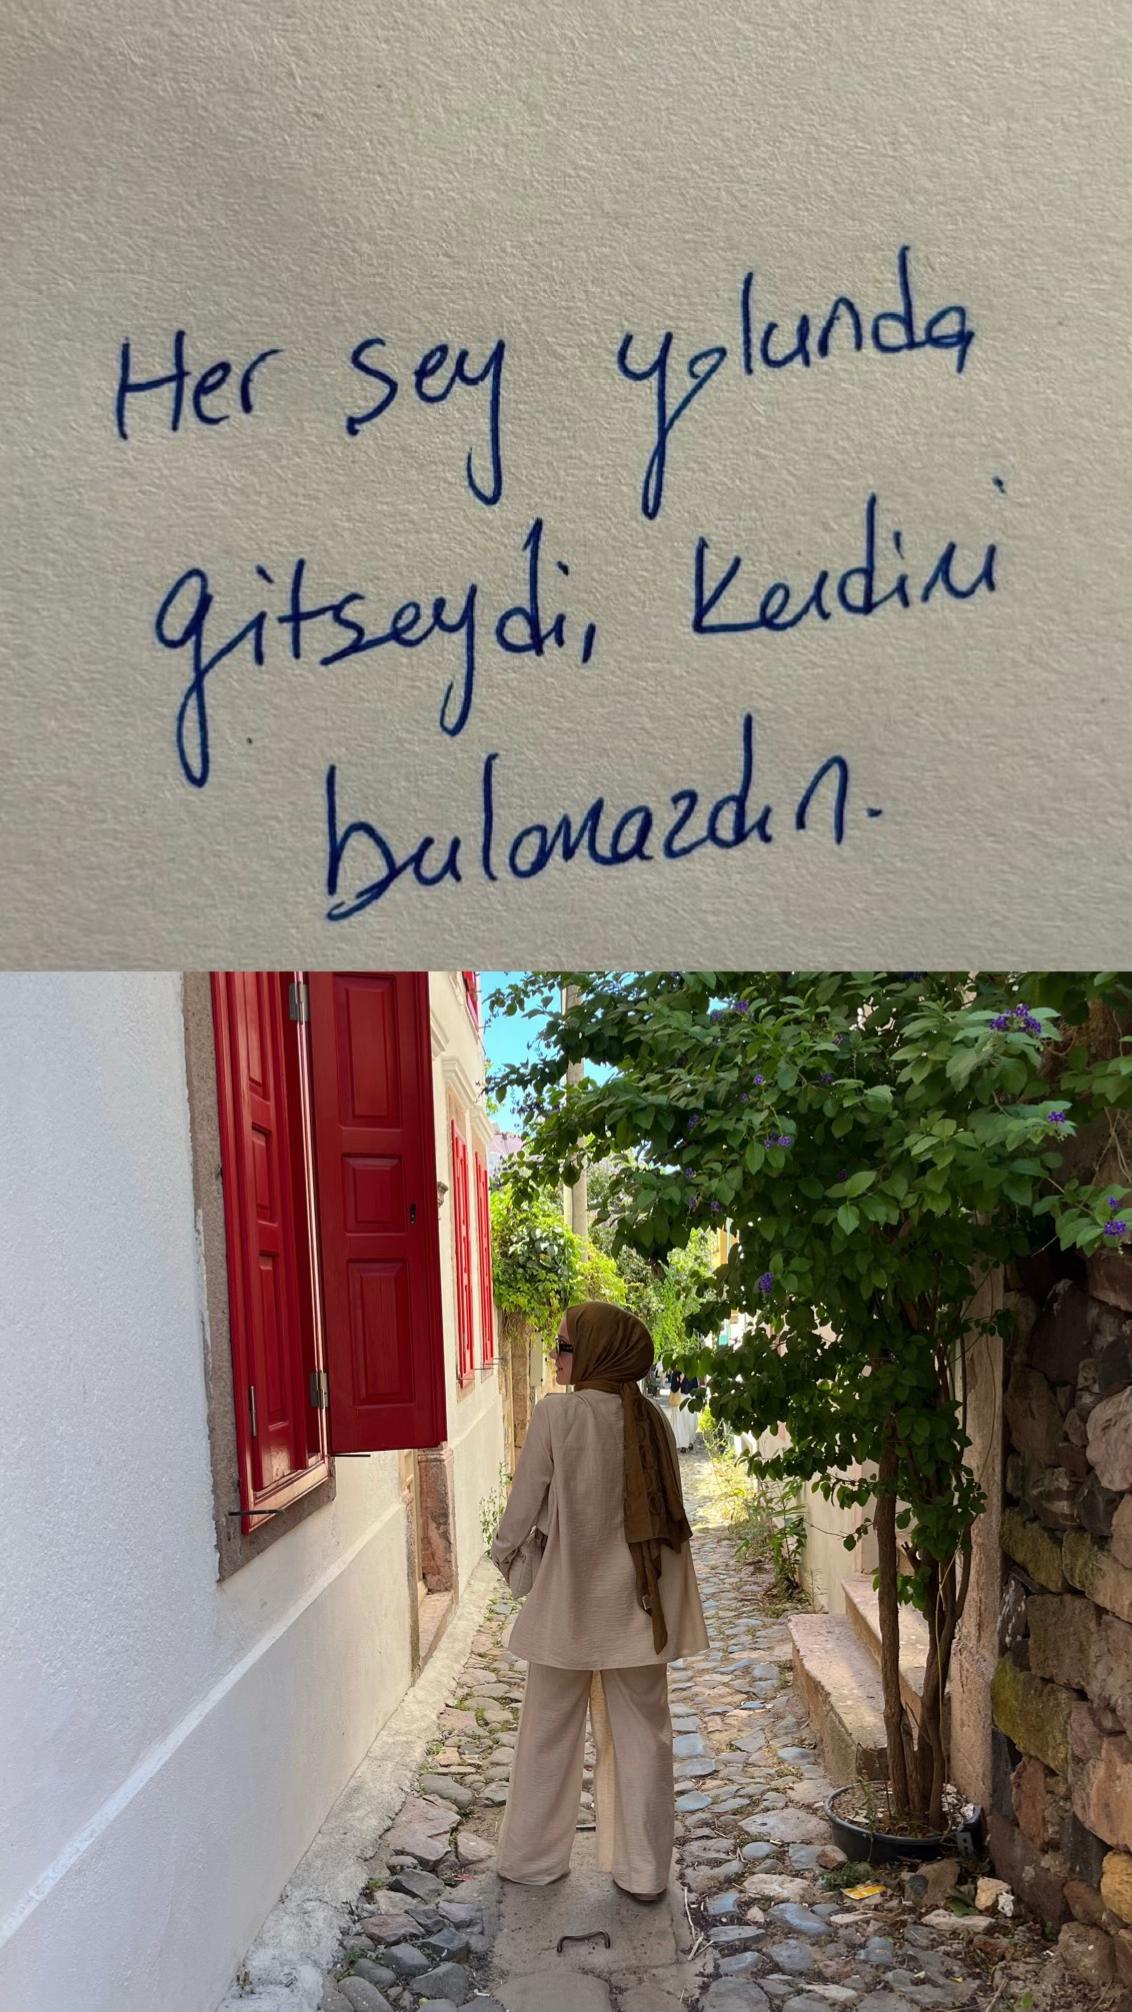 Her şey yolunda
gitseydi, kendini
bulamazdın.